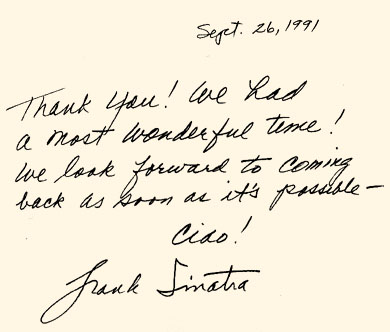 Sept. 26, 1991
Thank You! We had
a most wonderful time!
We look forward to coming
back as soon as it's possible-
Ciao!
Frank Sinatra